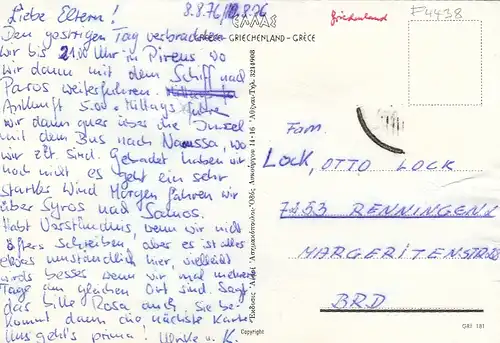 Liebe Eltern! 8.8.76/10.8.76
Den gestrigen Tag verbrachten
wir bis 21.00 Uhr in Pireus wo
wir dann mit dem Schiff nach
Paros weiterfuhren.
Ankunft 5.00. Mittags fuhren
wir dann quer über die Insel
mit dem Bus nach Naussa, wo
wir zZt. sind. Gebadet haben wir
noch nicht es geht ein sehr
starker Wind Morgen fahren wir
über Syros nach Samos.
Habt Verständnis, wenn wir nicht
öfters schreiben, aber es ist alles
etwas umständlich hier, vielleicht
wirds besser wenn wir mal mehrere
Tage am gleichen Ort sind. Sagt
das bitte Rosa auch, Sie be-
kommt dann die nächste Karte
Uns geht's prima! u. K.
ΕΛΛΑΣ
GREECE - GRIECHENLAND - GRÈCE
Griechenland
F4438
Fam.
Lock, OTTO LOCK
7253 RENNINGEN 1
MARGERITENSTR
BRD
Copyright
GRE 181